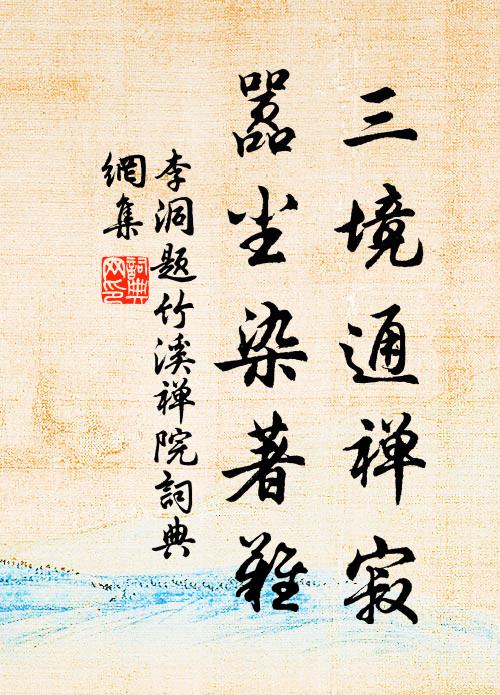 三境通禅寂
嚣尘染著難
李洞题竹溪禅院詞典
網集
詞典
网印